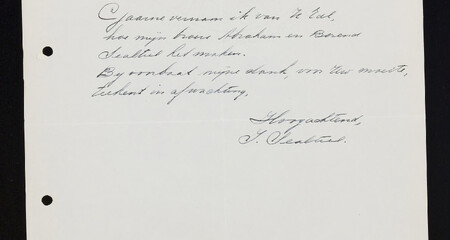 Gaarne vernam ik van U Ed,
hoe mijn broers Abraham en Barend
Sealtiel het maken.
By voorbaat mijne dank, voor Uw moeite,
teekent in afwachting,
Hoogachtend,
J. Sealtiel.